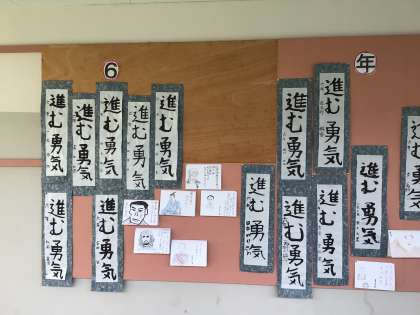 6
年
進む勇気
進む勇気
進む勇気
進む勇気
進む勇気
進む勇気
進む勇気
進む勇気
進む勇気
進む勇気
進む勇気
進む勇気
進む勇気
進む勇気